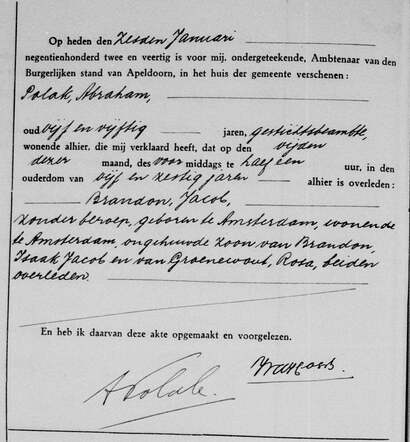 Op heden den zesden Januari
negentienhonderd twee en veertig is voor mij, ondergeteekende, Ambtenaar van den
Burgerlijken stand van Apeldoorn, in het huis der gemeente verschenen:
Polak, Abraham,
oud vijf en vijftig jaren, gestichtsbeambte,
wonende alhier, die mij verklaard heeft, dat op den vijfden
dezer maand, des voormiddags te half een uur, in den
ouderdom van vijf en zestig jaren alhier is overleden:
Brandon, Jacob,
zonder beroep, geboren te Amsterdam, wonende
te Amsterdam, ongehuwde zoon van Brandon,
Isaak Jacob en van Groenewout, Rosa, beiden
overleden.
En heb ik daarvan deze akte opgemaakt en voorgelezen.
A Polak.